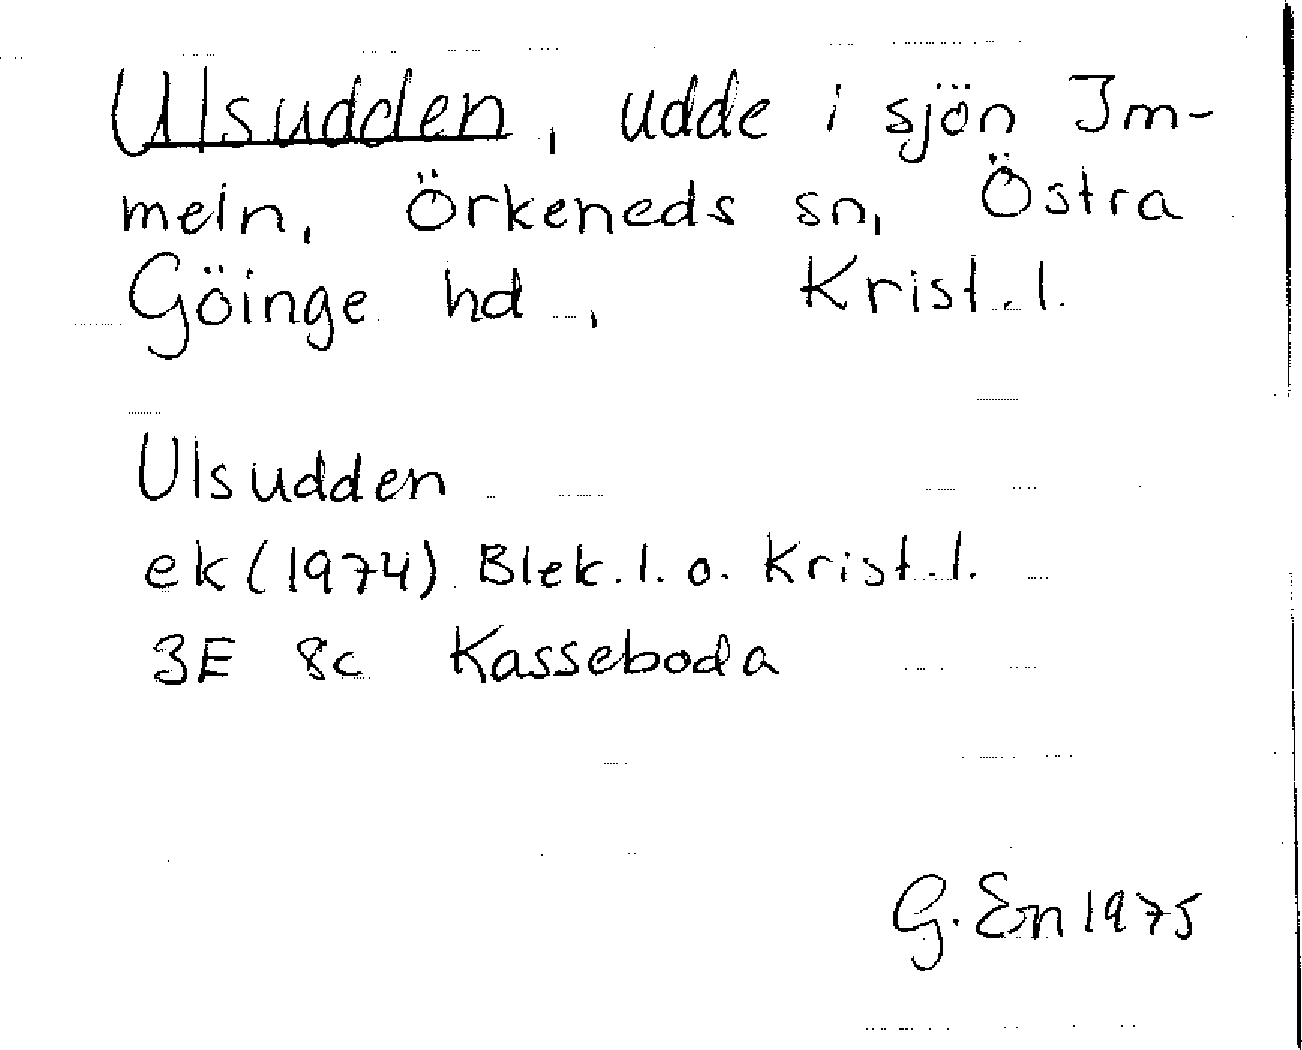 Ulsudden, udde i sjön Im-
meln, Örkeneds sn, Östra
Göinge hd, Krist. l.
Ulsudden
ek (1974) Blek. l. o. Krist. l.
3E 8c Kasseboda
G. En 1975